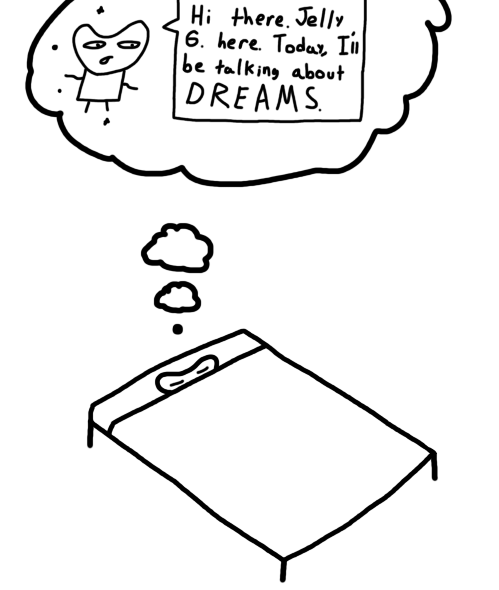 Hi there. Jelly
6. here. Today, I'll
be talking about
DREAMS.